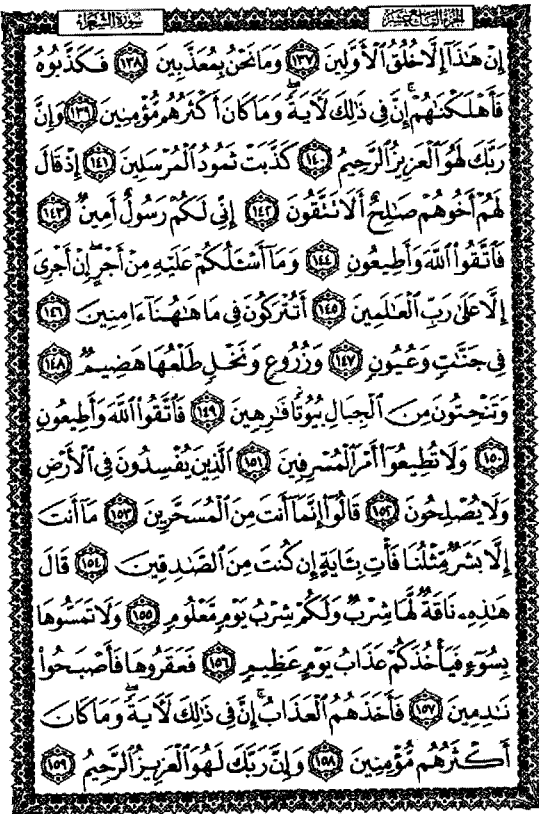 الجزء التاسع عشر
سورة الشعراء
إِنْ هَٰذَآ إِلَّا خُلُقُ ٱلْأَوَّلِينَ ١٣٧ وَمَا نَحْنُ بِمُعَذَّبِينَ ١٣٨ فَكَذَّبُوهُ
فَأَهْلَكْنَٰهُمْ ۗ إِنَّ فِى ذَٰلِكَ لَءَايَةً ۖ وَمَا كَانَ أَكْثَرُهُم مُّؤْمِنِينَ ١٣٩ وَإِنَّ
رَبَّكَ لَهُوَ ٱلْعَزِيزُ ٱلرَّحِيمُ ١٤٠ كَذَّبَتْ ثَمُودُ ٱلْمُرْسَلِينَ ١٤١ إِذْ قَالَ
لَهُمْ أَخُوهُمْ صَٰلِحٌ أَلَا تَتَّقُونَ ١٤٢ إِنِّى لَكُمْ رَسُولٌ أَمِينٌ ١٤٣
فَٱتَّقُوا۟ ٱللَّهَ وَأَطِيعُونِ ١٤٤ وَمَآ أَسْـَٔلُكُمْ عَلَيْهِ مِنْ أَجْرٍ ۖ إِنْ أَجْرِىَ
إِلَّا عَلَىٰ رَبِّ ٱلْعَٰلَمِينَ ١٤٥ أَتُتْرَكُونَ فِى مَا هَٰهُنَآ ءَامِنِينَ ١٤٦
فِى جَنَّٰتٍ وَعُيُونٍ ١٤٧ وَزُرُوعٍ وَنَخْلٍ طَلْعُهَا هَضِيمٌ ١٤٨
وَتَنْحِتُونَ مِنَ ٱلْجِبَالِ بُيُوتًا فَٰرِهِينَ ١٤٩ فَٱتَّقُوا۟ ٱللَّهَ وَأَطِيعُونِ
١٥٠ وَلَا تُطِيعُوٓا۟ أَمْرَ ٱلْمُسْرِفِينَ ١٥١ ٱلَّذِينَ يُفْسِدُونَ فِى ٱلْأَرْضِ
وَلَا يُصْلِحُونَ ١٥٢ قَالُوٓا۟ إِنَّمَآ أَنتَ مِنَ ٱلْمُسَحَّرِينَ ١٥٣ مَآ أَنتَ
إِلَّا بَشَرٌ مِّثْلُنَا فَأْتِ بِـَٔايَةٍ إِن كُنتَ مِنَ ٱلصَّٰدِقِينَ ١٥٤ قَالَ
هَٰذِهِۦ نَاقَةٌ لَّهَا شِرْبٌ وَلَكُمْ شِرْبُ يَوْمٍ مَّعْلُومٍ ١٥٥ وَلَا تَمَسُّوهَا
بِسُوٓءٍ فَيَأْخُذَكُمْ عَذَابُ يَوْمٍ عَظِيمٍ ١٥٦ فَعَقَرُوهَا فَأَصْبَحُوا۟
نَٰدِمِينَ ١٥٧ فَأَخَذَهُمُ ٱلْعَذَابُ ۗ إِنَّ فِى ذَٰلِكَ لَءَايَةً ۖ وَمَا كَانَ
أَكْثَرُهُم مُّؤْمِنِينَ ١٥٨ وَإِنَّ رَبَّكَ لَهُوَ ٱلْعَزِيزُ ٱلرَّحِيمُ ١٥٩